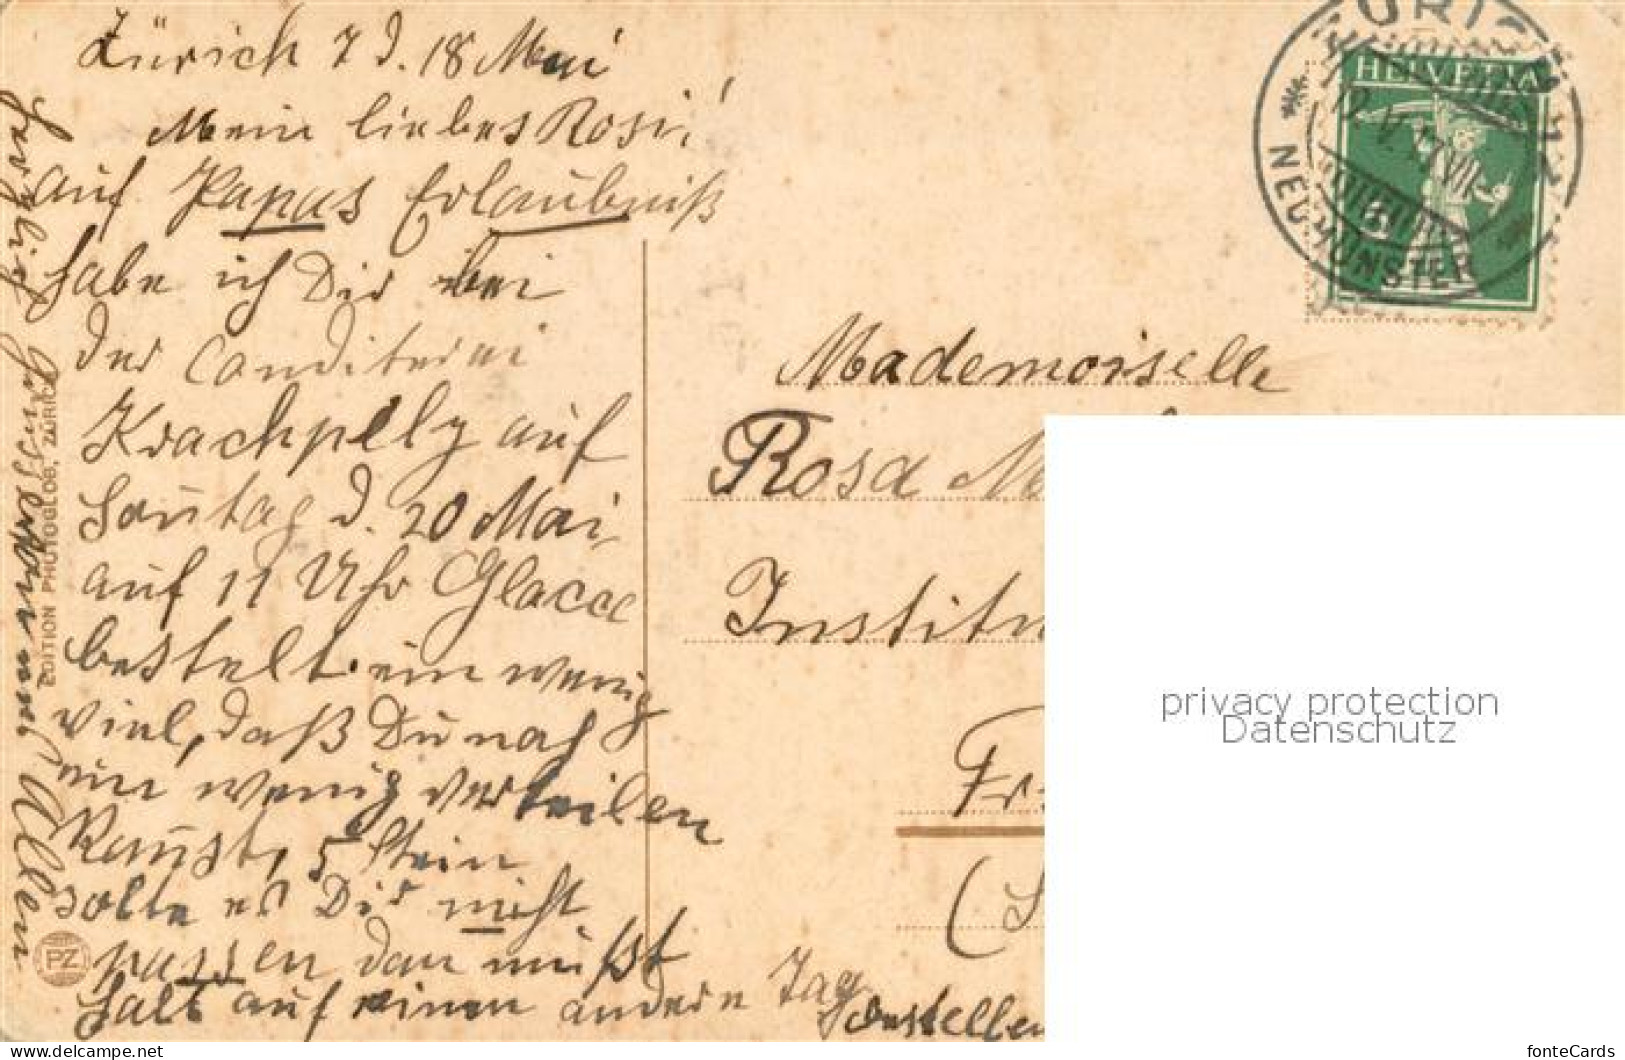 Zürich 7 d. 18 Mai
Mein liebes Rosi!
auf Papas Erlaubniß
habe ich Dir bei
der Conditerei
Krachpelz auf
Sontag d. 20 Mai
auf 11 Uhr Glacee
bestelt ein wenig
viel, daß Du noch
ein wenig verteilen
kanst, 5 Stein
solte es Dir nicht
passen dan mußt
halt auf einen andern Tag
bestellen
herzlich grüßen von uns Allen
EDITION PHOTOGLOB, ZÜRICH
PZ
HELVETIA
NEUMÜNSTER
Mademoiselle
Rosa M
Institu
Fr
(S
privacy protection
Datenschutz
www.delcampe.net
fonteCards